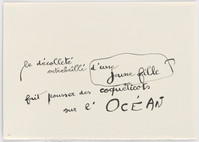 le décolleté
entrebâillé d'une
jeune fille
fait pousser des coquelicots
sur l' OCÉAN